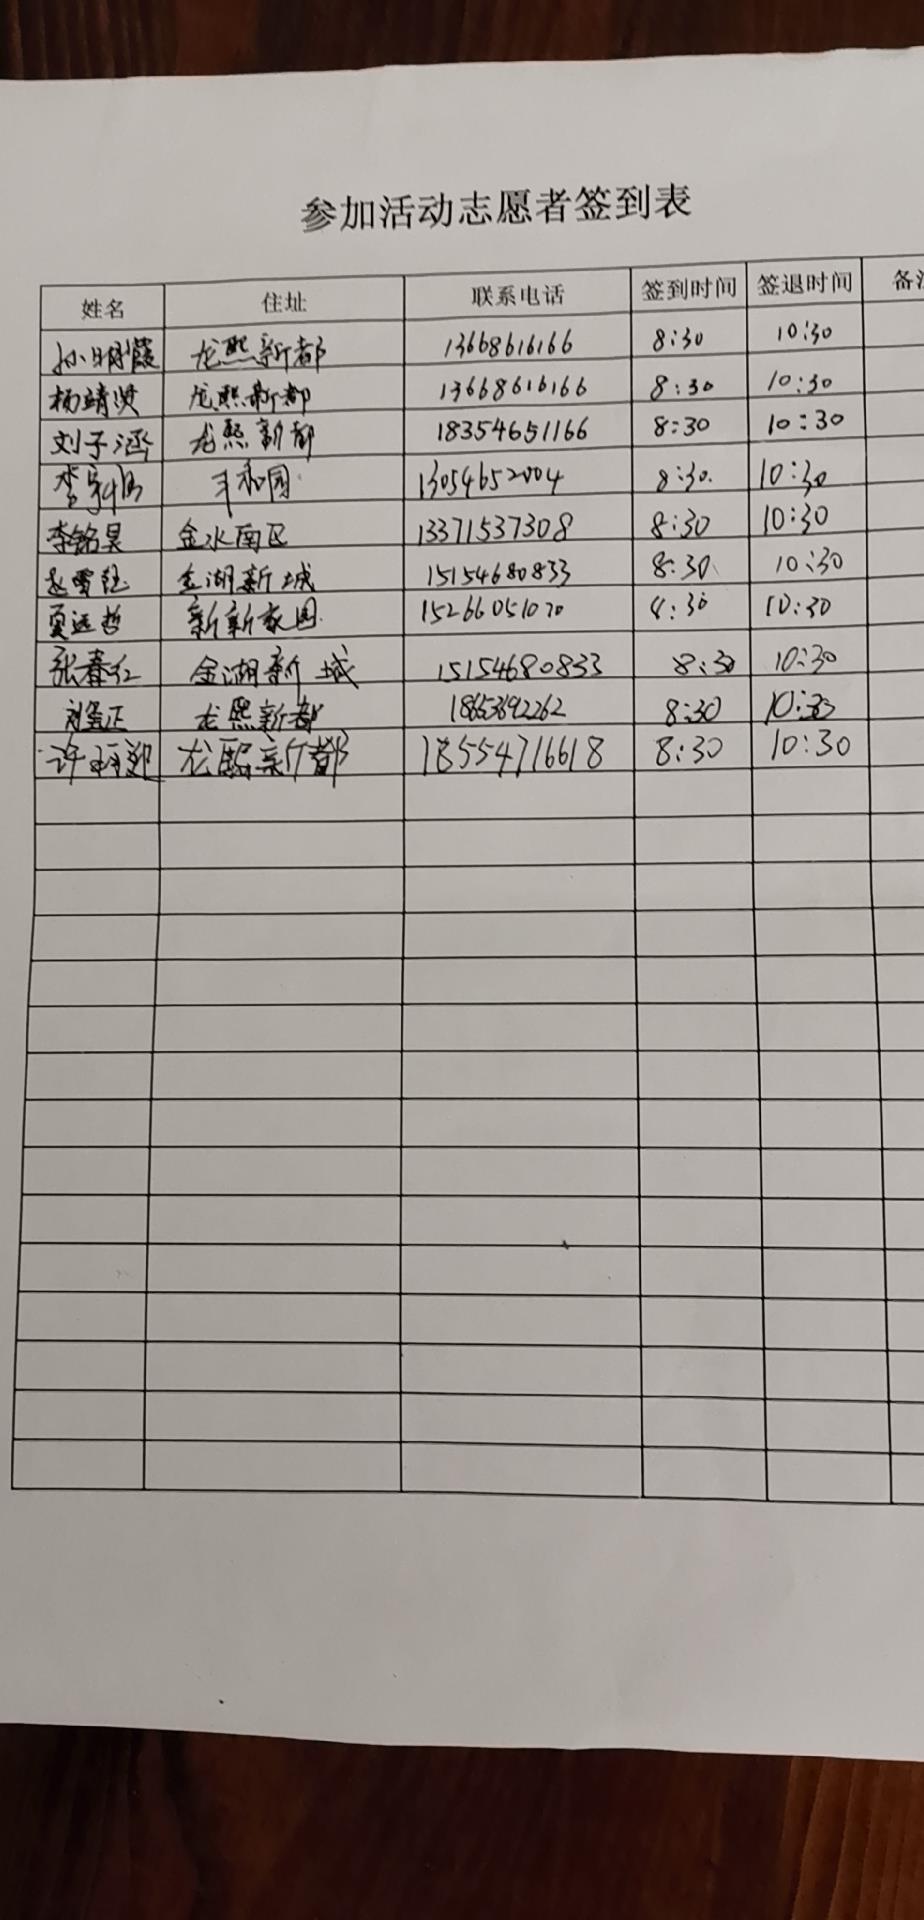 参加活动志愿者签到表
姓名 住址 联系电话 签到时间 签退时间 备注
孙明霞 龙熙新都 13668616166 8:30 10:30
杨靖贤 龙熙新都 13668616166 8:30 10:30
刘子涵 龙熙新都 18354651166 8:30 10:30
李 丰和园 13054652004 8:30 10:30
李铭昊 金水南区 13371537308 8:30 10:30
赵雪钰 金湖新城 15154680833 8:30 10:30
夏远哲 新新家园 15266051070 8:30 10:30
张春红 金湖新城 15154680833 8:30 10:30
刘 正 龙熙新都 18653692262 8:30 10:30
许 迎 龙熙新都 18554716618 8:30 10:30